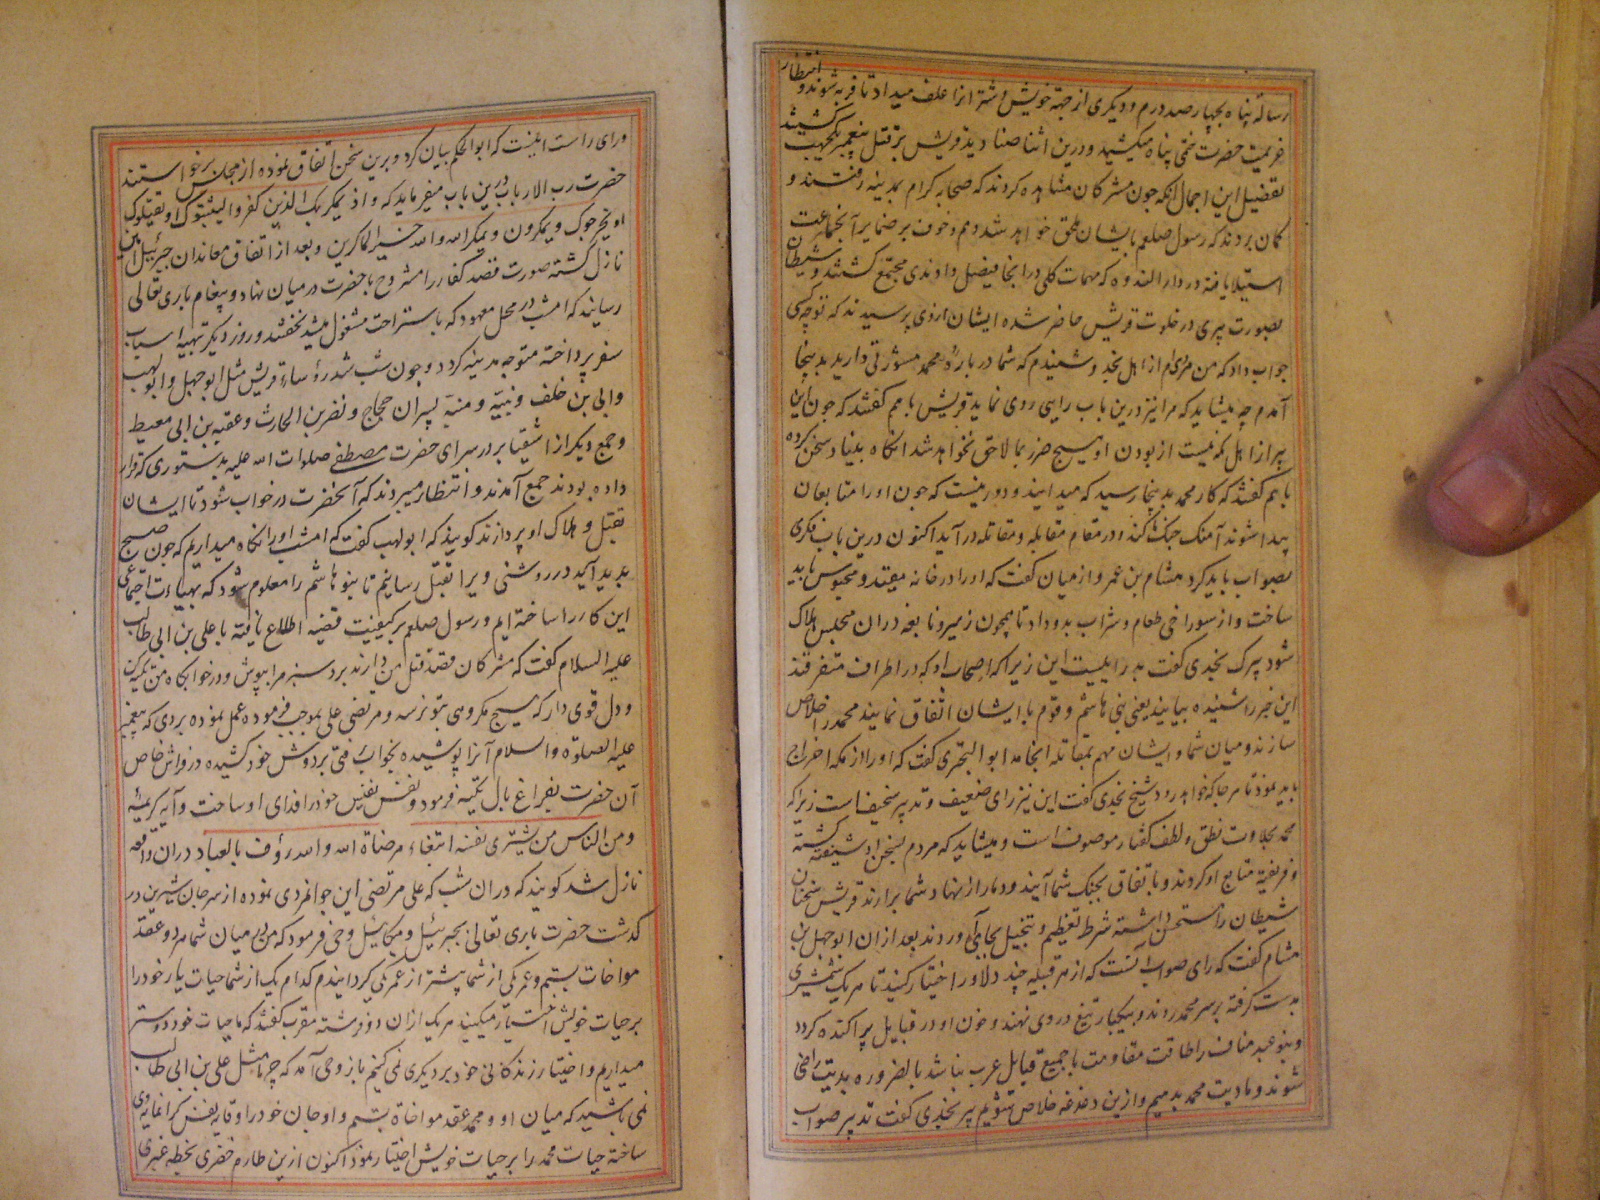 رساله پناه بچهار صد درم و دیگری از جهة خویش و شترانرا علف میداد تا فربه شوند و انتظار
عزیمت حضرت ختمی پناه میکشید و درین اثنا صنادید قریش بر قتل پیغمبر
تفصیل این اجمال آنکه چون مشرکان مشاهده کردند که صحابه کرام بمدینه رفتند و
کمان بردند که رسول صلعم بایشان ملحق خواهد شد وهم و خوف بر ضمایر آنجماعت
استیلا یافته در دار الندوه که مهمات کلی در انجا فیصل دادندی مجتمع کشتند و شیطان
بصورت پیری در خلوت قریش حاضر شده ایشان ازوی پرسیدند که تو چه کسی
جواب داد که من مردی ام از اهل نجد و شنیدم که شما در باره محمد مشورتی دارید بدینجا
آمدم چه میشاید که مرا نیز درین باب رایی روی نماید قریش با هم کفتند که چون این
پیر از اهل مکه نیست از بودن او هیچ ضرر بما لاحق نخواهد شد انکاه بنیاد سخن کرده
با هم کفتند که کار محمد بدینجا رسید که میدانید و دور نیست که چون او را متابعان
پیدا شوند آهنک جنک کند و در مقام مقابله و مقاتله در آید اکنون درین باب فکری
بصواب باید کرد هشام بن عمرو از میان کفت که او را در خانه مقید و محبوس باید
ساخت و از سوراخی طعام و شراب بدو داد تا همچون زهیر و نابغه دران محبس هلاک
شود پیرک نجدی کفت بد راییست این زیرا که اصحاب او که در اطراف متفرقند
این خبر را شنیده بیایند یعنی بنی هاشم و قوم با ایشان اتفاق نمایند محمد را خلاص
سازند و میان شما و ایشان مهم بمقاتله انجامد ابو البختری کفت که او را از مکه اخراج
باید نمود تا هر جا که خواهد رود شیخ نجدی کفت این نیز رای ضعیف و تدبیر سخیف است زیرا که
محمد بحلاوت نطق و لطف کفتار موصوف است و میشاید که مردم بسخن او شیفته کشته
و فریفته متابع او کردند و باتفاق بجنک شما آیند و دمار از نهاد شما برارند قریش سخنان
شیطان را مستحسن داشته شرط تعظیم و تبجیل بجای آوردند بعد ازان ابو جهل بن
هشام کفت که رای صواب آنست که از هر قبیله چند دلاور اختیار کنید تا هر یک شمشیری
بدست کرفته بر سر محمد روند و بیکبار تیغ در وی نهند و خون او در قبایل پراکنده کردد
و بنو عبد مناف را طاقت مقاومت با جمیع قبایل عرب نباشد بالضروره بدیت راضی
شوند و ما دیت محمد بدهیم و ازین دغدغه خلاص شویم پیر نجدی کفت تدبیر صواب
ورای راست اینست که ابو الحکم بیان کرد و برین سخن اتفاق نموده از مجلس برخواستند
حضرت رب الارباب درین باب میفرماید که و اذ یمکر بک الذین کفروا لیثبتوک او یقتلوک
او یخرجوک و یمکرون و یمکر الله و الله خیر الماکرین و بعد از اتفاق معاندان جبرئیل امین
نازل کشته صورت قصد کفار را مشروح با حضرت در میان نهاد و پیغام باری تعالی
رسانید که امشب در محل معهود که باستراحت مشغول میشد نخفتد و روز دیکر تهیه اسباب
سفر پرداخته متوجه مدینه کردد و چون شب شد رؤساء قریش مثل ابو جهل و ابو لهب
و ابی بن خلف و نبیه و منبه پسران حجاج و نضر بن الحارث و عقبه بن ابی معیط
و جمع دیکر از اشقیا بر در سرای حضرت مصطفی صلوات الله علیه بدستوری که قرار
داده بودند جمع آمدند و انتظار میبردند که آنحضرت در خواب شود تا ایشان
بقتل و هلاک او پردازند کویند که ابو لهب کفت که امشب او را نکاه میداریم که چون صبح
پدید آید در روشنی ویرا بقتل رسانیم تا بنو هاشم را معلوم شود که بهیاءت اجتماعی
این کار را ساخته ایم و رسول صلعم بر کیفیت قضیه اطلاع یافته با علی بن ابی طالب
علیه السلام کفت که مشرکان قصد قتل من دارند برد سبز مرا بپوش و در خوابکاه من تکیه کن
و دل قوی دار که هیچ مکروهی بتو نرسد و مرتضی علی بموجب فرموده عمل نموده بردی که پیغمبر
علیه الصلوة و السلام آنرا پوشیده بخواب رفتی بر دوش خود کشیده در فراش خاص
آن حضرت بفراغ بال تکیه فرمود و نفس نفیس خود را فدای او ساخت و آیه کریمه
و من الناس من یشتری نفسه ابتغاء مرضاة الله و الله رؤف بالعباد دران واقعه
نازل شد کویند که دران شب که علی مرتضی این جوانمردی نموده از سر جان شیرین در
کذشت حضرت باری تعالی بجبرئیل و میکائیل وحی فرمود که من میان شما هر دو عقد
مواخات بستم و عمر یکی از شما بیشتر از عمر یکی کردانیدم کدام یک از شما حیات یار خود را
بر حیات خویش اختیار میکنید هر یک ازان دو فرشته مقرب کفتند که ما حیات خود دوستر
میداریم و اختیار زندکانی خود بر دیکری نمی کنیم باز وحی آمد که چرا مثل علی بن ابی طالب
نمی باشید که میان او و محمد عقد مواخاة بستم و او جان خود را وقایه نفس کرانمایه وی
ساخته حیات محمد را بر حیات خویش اختیار نمود اکنون ازین طارم خضری بخطه غبری